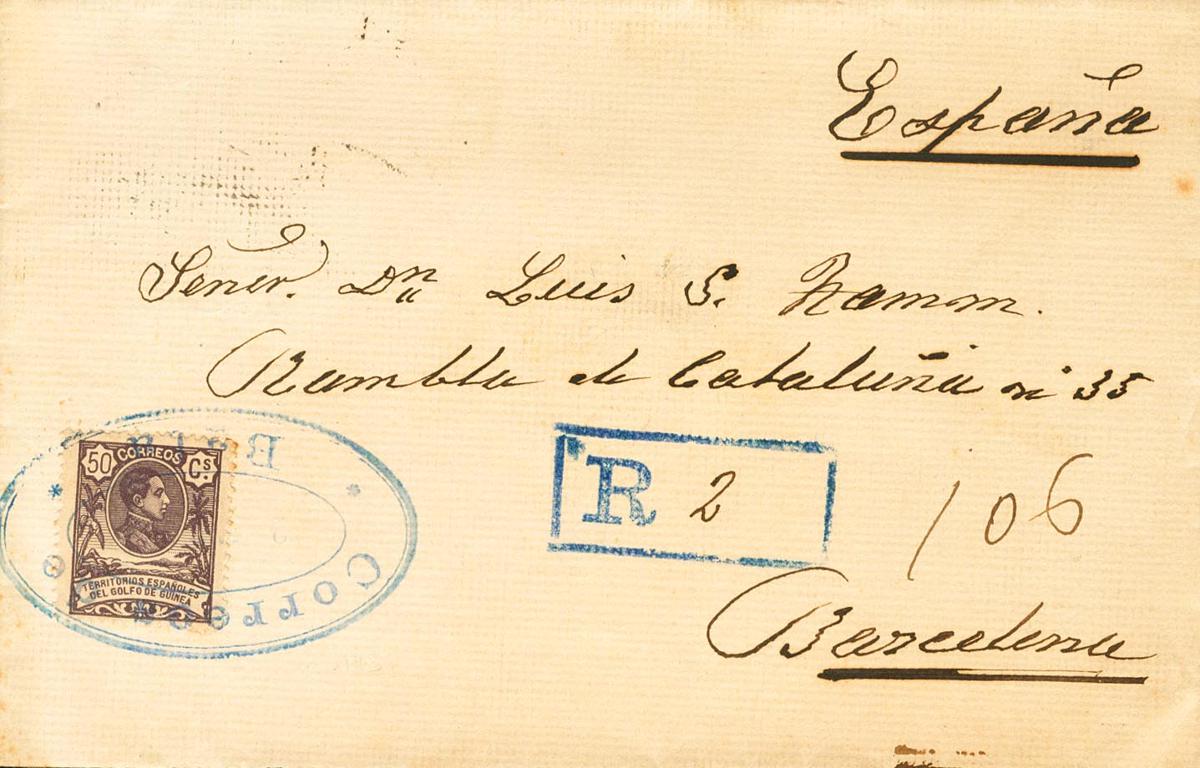 España
Señor. Dn Luis S. Hamm.
Rambla de Cataluña nº 35
R 2
106
Barcelona
50 CORREOS Cs.
TERRITORIOS ESPAÑOLES
DEL GOLFO DE GUINEA
Bata
Correos